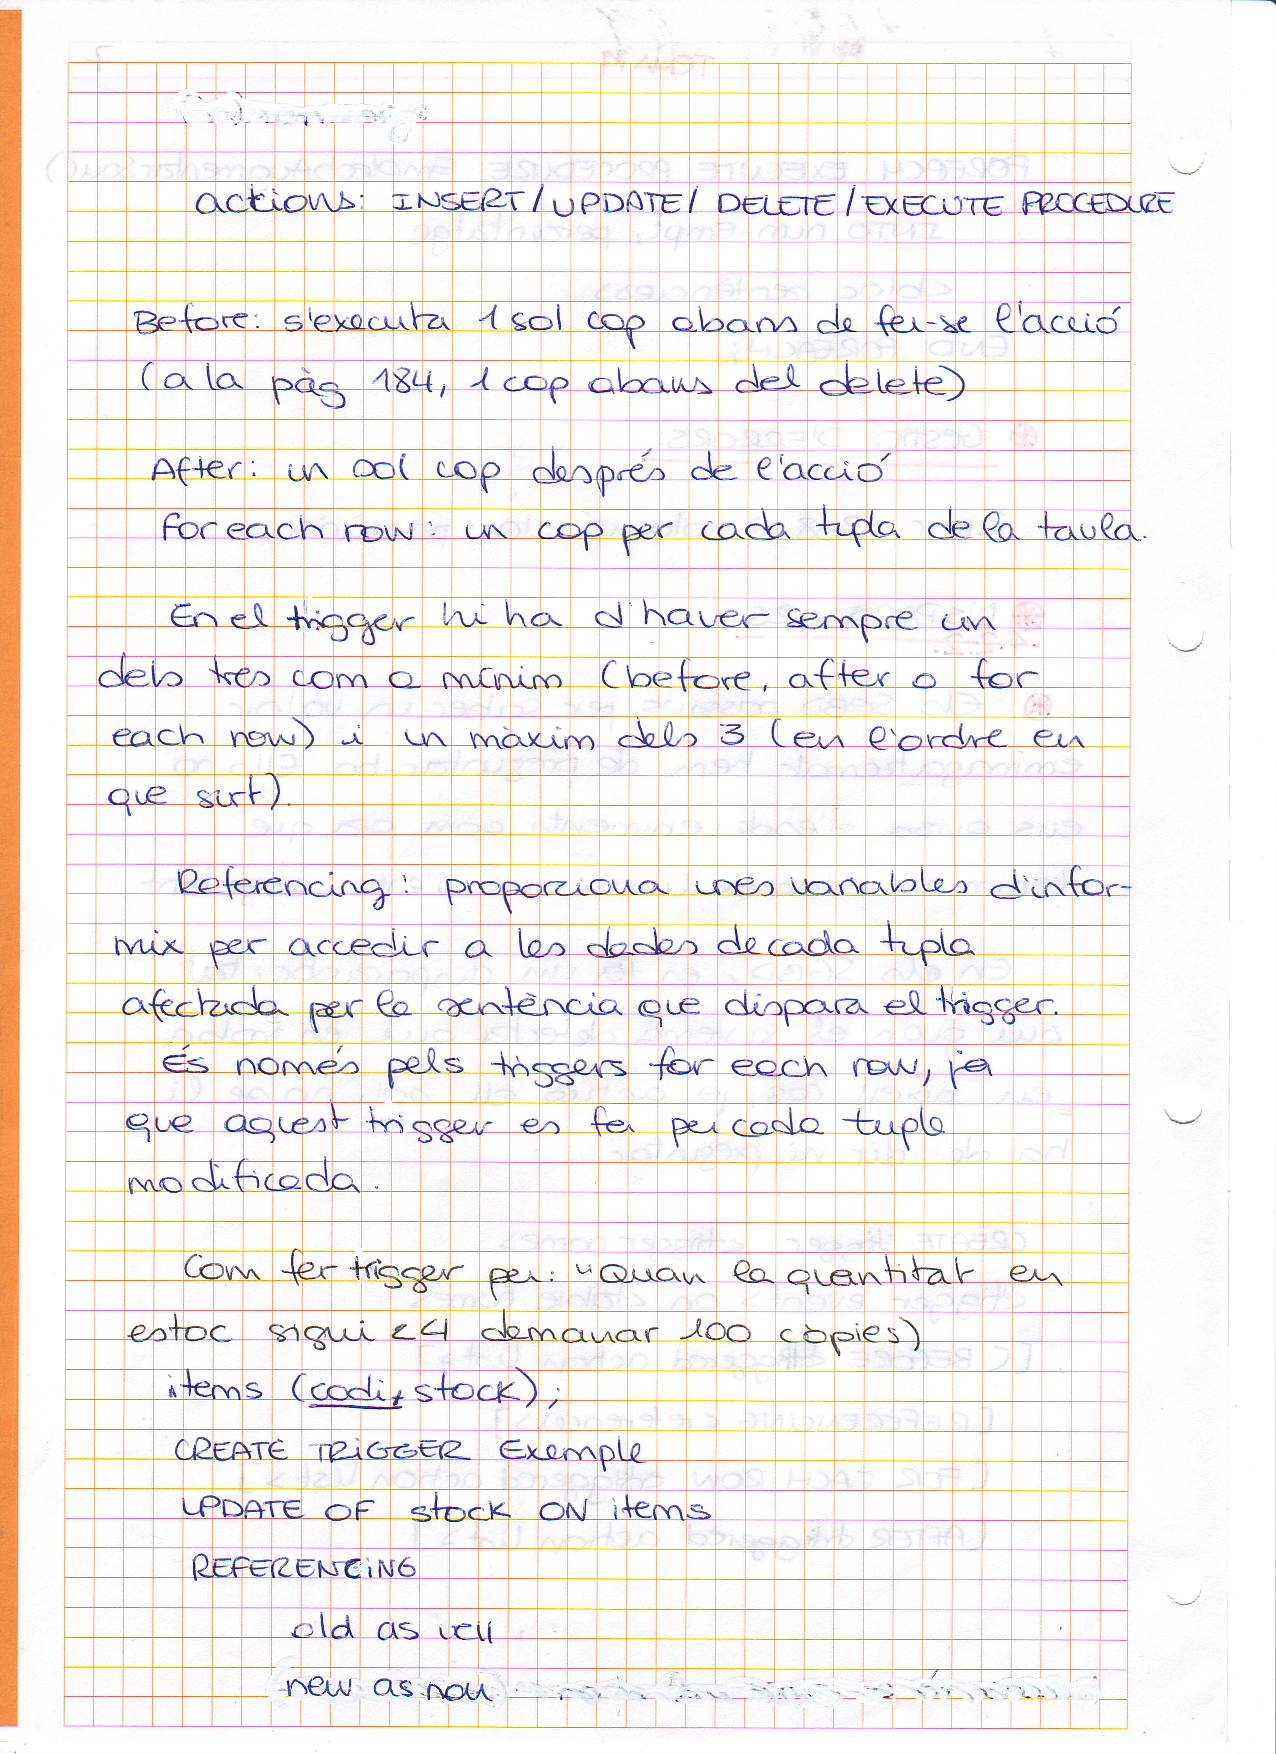 actions: INSERT/UPDATE/DELETE/EXECUTE PROCEDURE
Before: s'executa 1 sol cop abans de fer-se l'acció
(a la pàg 184, 1 cop abans del delete)
After: un sol cop després de l'acció
for each row: un cop per cada tupla de la taula.
En el trigger hi ha d'haver sempre un
dels tres com a mínim (before, after o for
each row) i un màxim dels 3 (en l'ordre en
que surt).
Referencing: proporciona unes variables d'infor-
mix per accedir a les dades de cada tupla
afectada per la sentència que dispara el trigger.
És només pels triggers for each row, ja
que aquest trigger es fa per cada tupla
modificada.
Com fer trigger per: "Quan la quantitat en
estoc sigui <4 demanar 100 còpies)
items (codi, stock);
CREATE TRIGGER Exemple
UPDATE OF stock ON items
REFERENCING
old as vell
new as nou